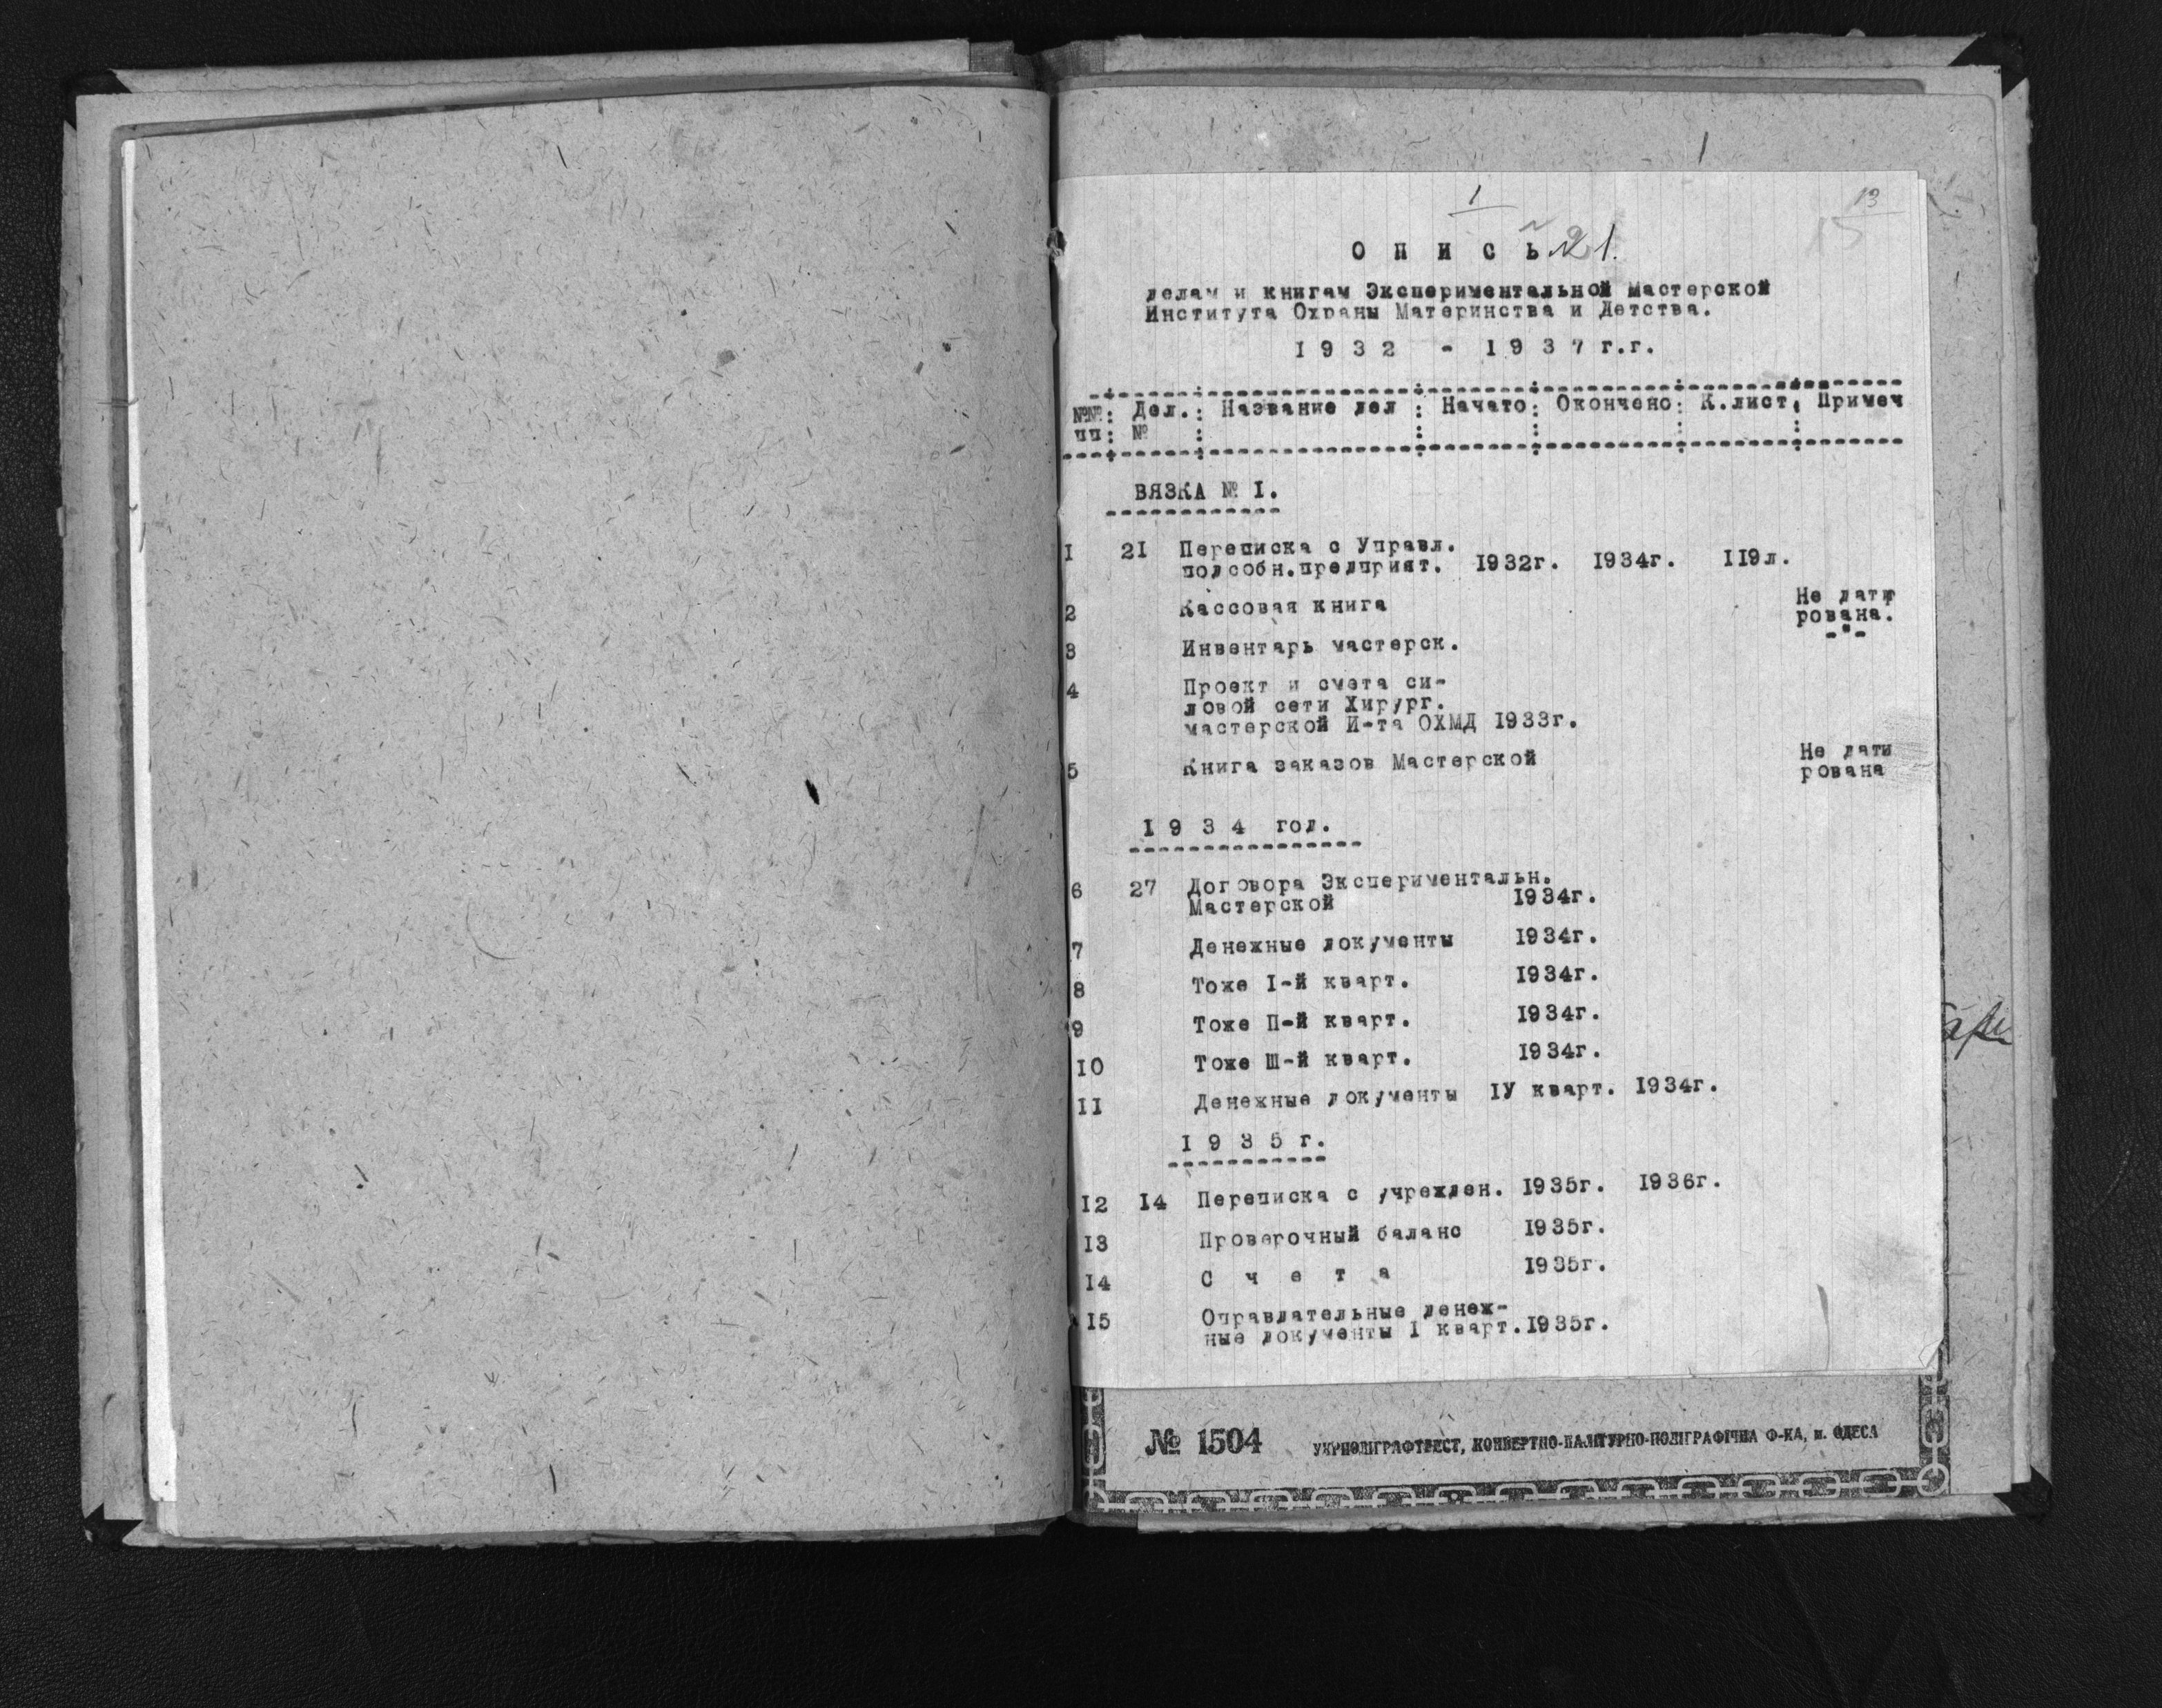 1
1
13
15
О П И С Ь № 1.
делам и книгам Экспериментальной Мастерской
Института Охраны Материнства и Детства.
1932 - 1937 г.г.
№№: Дел.: Название дел : Начато: Окончено: К.лист: Примеч
пп: № : : : : :
ВЯЗКА № I.
I 2I Переписка с Управл.
подсобн.предприят. 1932г. 1934г. II9л.
2 Кассовая книга Не дати
рована.
3 Инвентарь мастерск. -"-
4 Проект и смета си-
ловой сети Хирург.
мастерской И-та ОХМД 1933г.
5 Книга заказов Мастерской Не дати
рована
I 9 3 4 год.
6 27 Договора Экспериментальн.
Мастерской I934г.
7 Денежные документы I934г.
8 Тоже I-й кварт. I934г.
9 Тоже П-й кварт. I934г.
I0 Тоже Ш-й кварт. I934г.
II Денежные документы IУ кварт. I934г.
I 9 3 5 г.
I2 I4 Переписка с учрежден. I935г. I936г.
I3 Проверочный баланс I935г.
I4 С ч е т а I935г.
I5 Оправдательные денеж-
ные документы I кварт.I935г.
№ 1504 УКРПОЛІГРАФТРЕСТ, КОНВЕРТНО-ПАЛІТУРНО-ПОЛІГРАФІЧНА Ф-КА, м. ОДЕСА